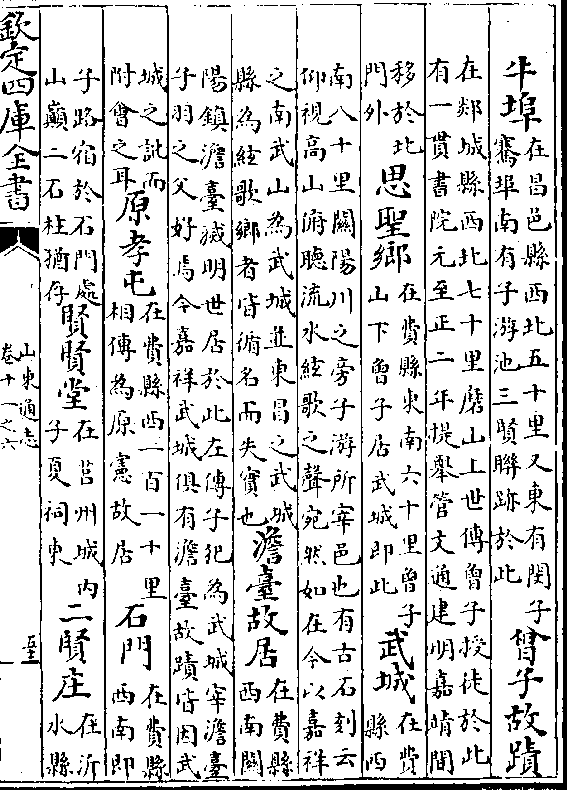 牛埠
在昌邑縣西北五十里又東有閔子
騫埠南有子游池三賢聯跡於此
曾子故蹟
在郯城縣西北七十里磨山上世傳曾子授徒於此
有一貫書院元至正二年提舉管文通建明嘉靖間
移於北
門外
思聖鄉
在費縣東南六十里曾子
山下曾子居武城即此
武城
在費
縣西
南八十里關陽川之旁子游所宰邑也有古石刻云
仰視高山俯聽流水絃歌之聲宛然如在今以嘉祥
之南武山為武城並東昌之武城
縣為絃歌鄉者皆循名而失實也
澹臺故居
在費縣
西南關
陽鎮澹臺滅明世居於此左傳子犯為武城宰澹臺
子羽之父好焉今嘉祥武城俱有澹臺故蹟皆因武
城之訛而
附會之耳
原孝屯
在費縣西一百一十里
相傳為原憲故居
石門
在費縣
西南即
子路宿於石門處
山巔二石柱猶存
賢賢堂
在莒州城内
子夏祠東
二賢庄
在沂
水縣
欽定四庫全書
山東通志
卷十一之六